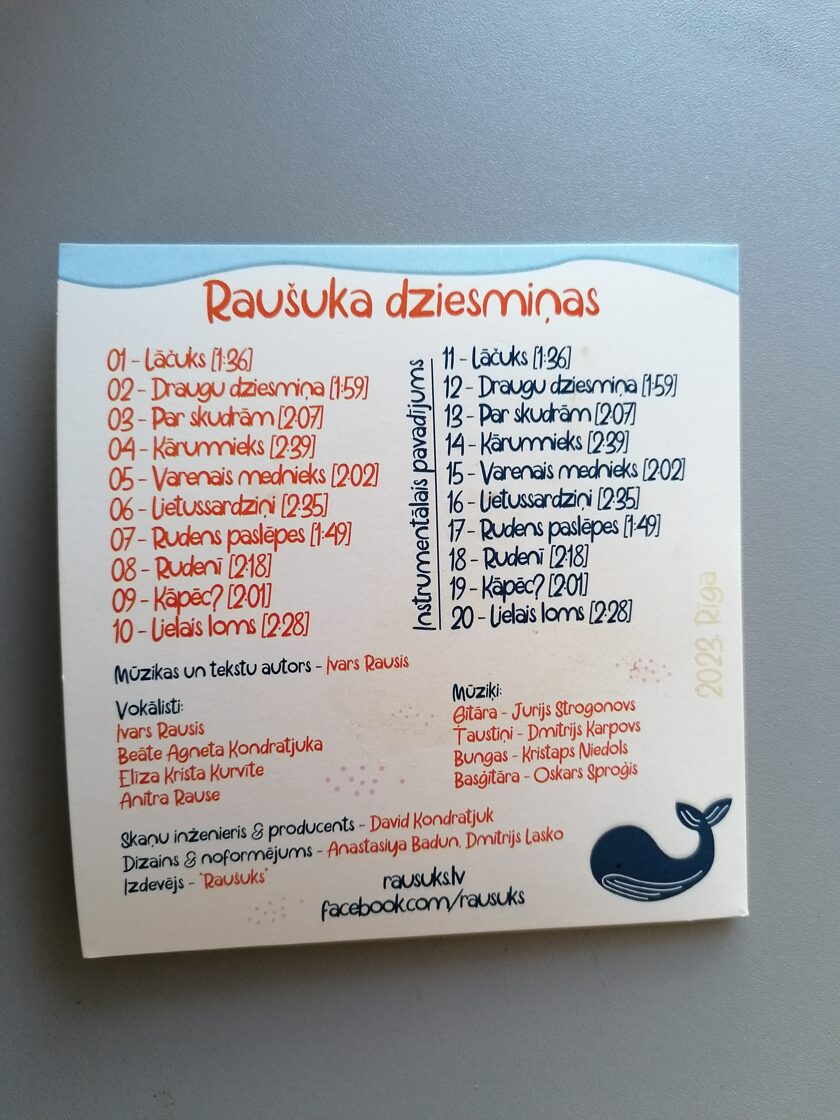 Raušuka dziesmiņas
01 - Lāčuks [1:36]
02 - Draugu dziesmiņa [1:59]
03 - Par skudrām [2:07]
04 - Kārumnieks [2:39]
05 - Varenais mednieks [2:02]
06 - Lietussardziņi [2:35]
07 - Rudens paslēpes [1:49]
08 - Rudenī [2:18]
09 - Kāpēc? [2:01]
10 - Lielais loms [2:28]
Instrumentālais pavadījums
11 - Lāčuks [1:36]
12 - Draugu dziesmiņa [1:59]
13 - Par skudrām [2:07]
14 - Kārumnieks [2:39]
15 - Varenais mednieks [2:02]
16 - Lietussardziņi [2:35]
17 - Rudens paslēpes [1:49]
18 - Rudenī [2:18]
19 - Kāpēc? [2:01]
20 - Lielais loms [2:28]
2023. Rīga
Mūzikas un tekstu autors - Ivars Rausis
Vokālisti:
Ivars Rausis
Beāte Agneta Kondratjuka
Elīza Krista Kurvīte
Anitra Rause
Mūziķi:
Ģitāra - Jurijs Strogonovs
Taustiņi - Dmitrijs Karpovs
Bungas - Kristaps Niedols
Basģitāra - Oskars Sproģis
Skaņu inženieris & producents - David Kondratjuk
Dizains & noformējums - Anastasiya Badun, Dmitrijs Lasko
Izdevējs - "Raušuks"
rausuks.lv
facebook.com/rausuks